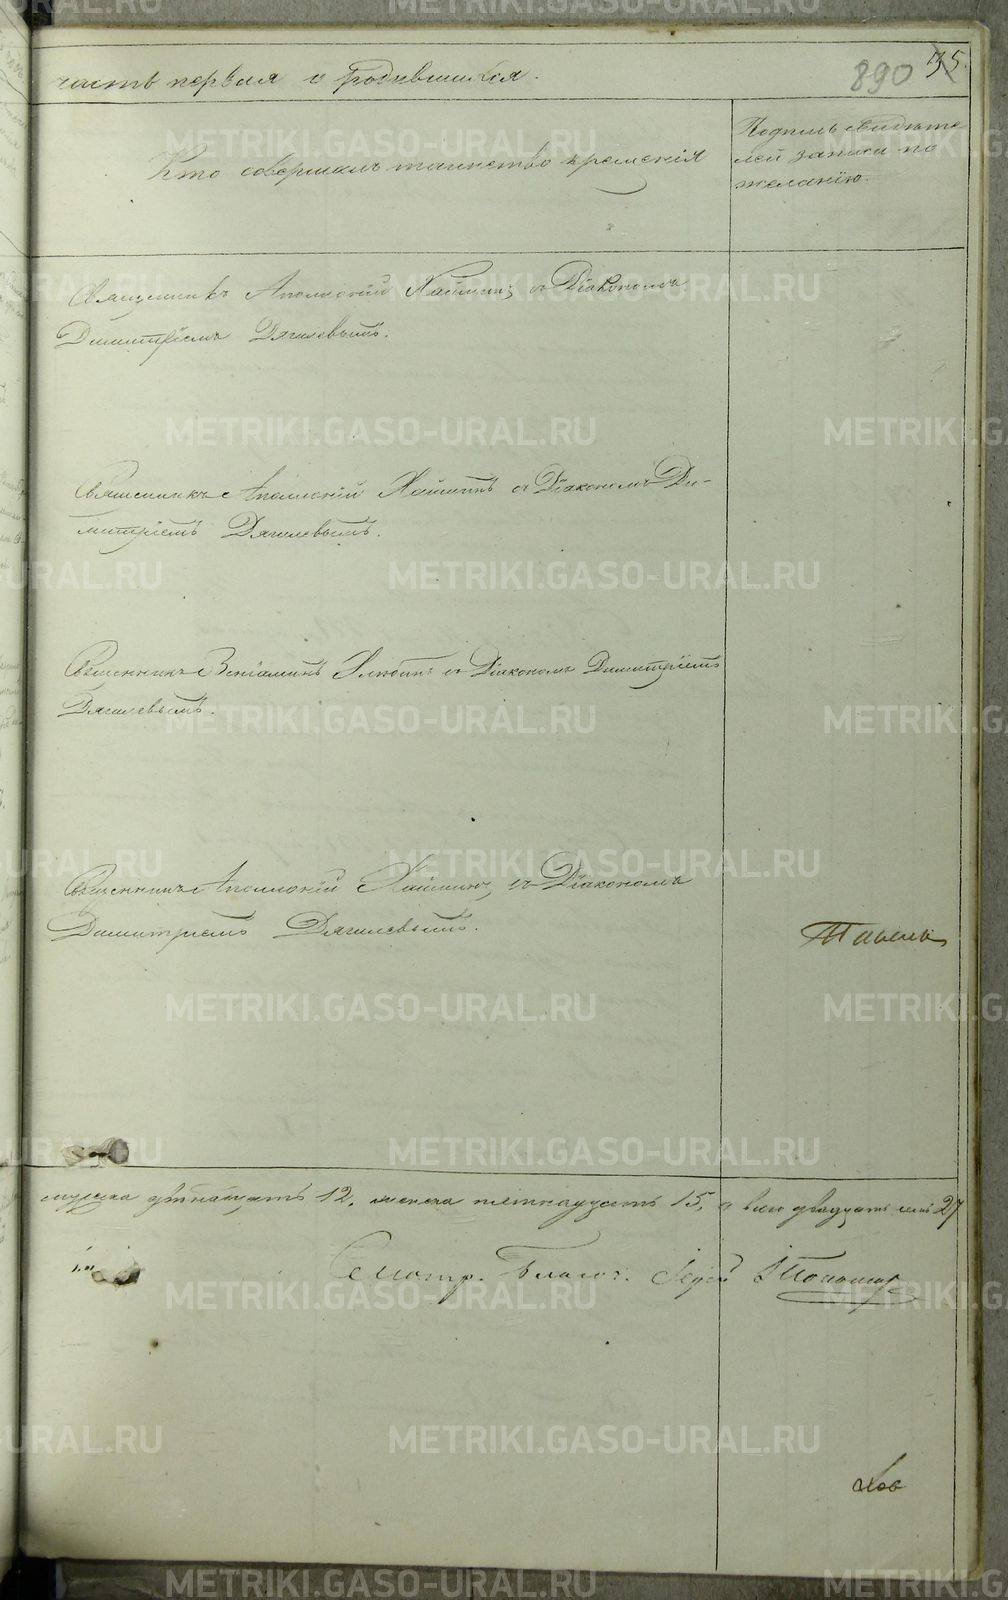 часть первая о родившихся.
890 35.
Кто совершалъ таинство крещенія
Подпись свидѣте
лей записи по
желанію.
Священникъ Аполлоній Хайминъ съ Діакономъ
Димитріемъ Дягилевымъ.
Священникъ Аполлоній Хайминъ съ Діакономъ Ди-
митріемъ Дягилевымъ.
Священникъ Веніаминъ съ Діакономъ Димитріемъ
Дягилевымъ.
Священникъ Аполлоній Хайминъ съ Діакономъ
Димитріемъ Дягилевымъ.
двѣнадцать 12, женска пятнадцать 15, а всего двадцать семь 27
Смотр. Благоч. Іерей
METRIKI.GASO-URAL.RU